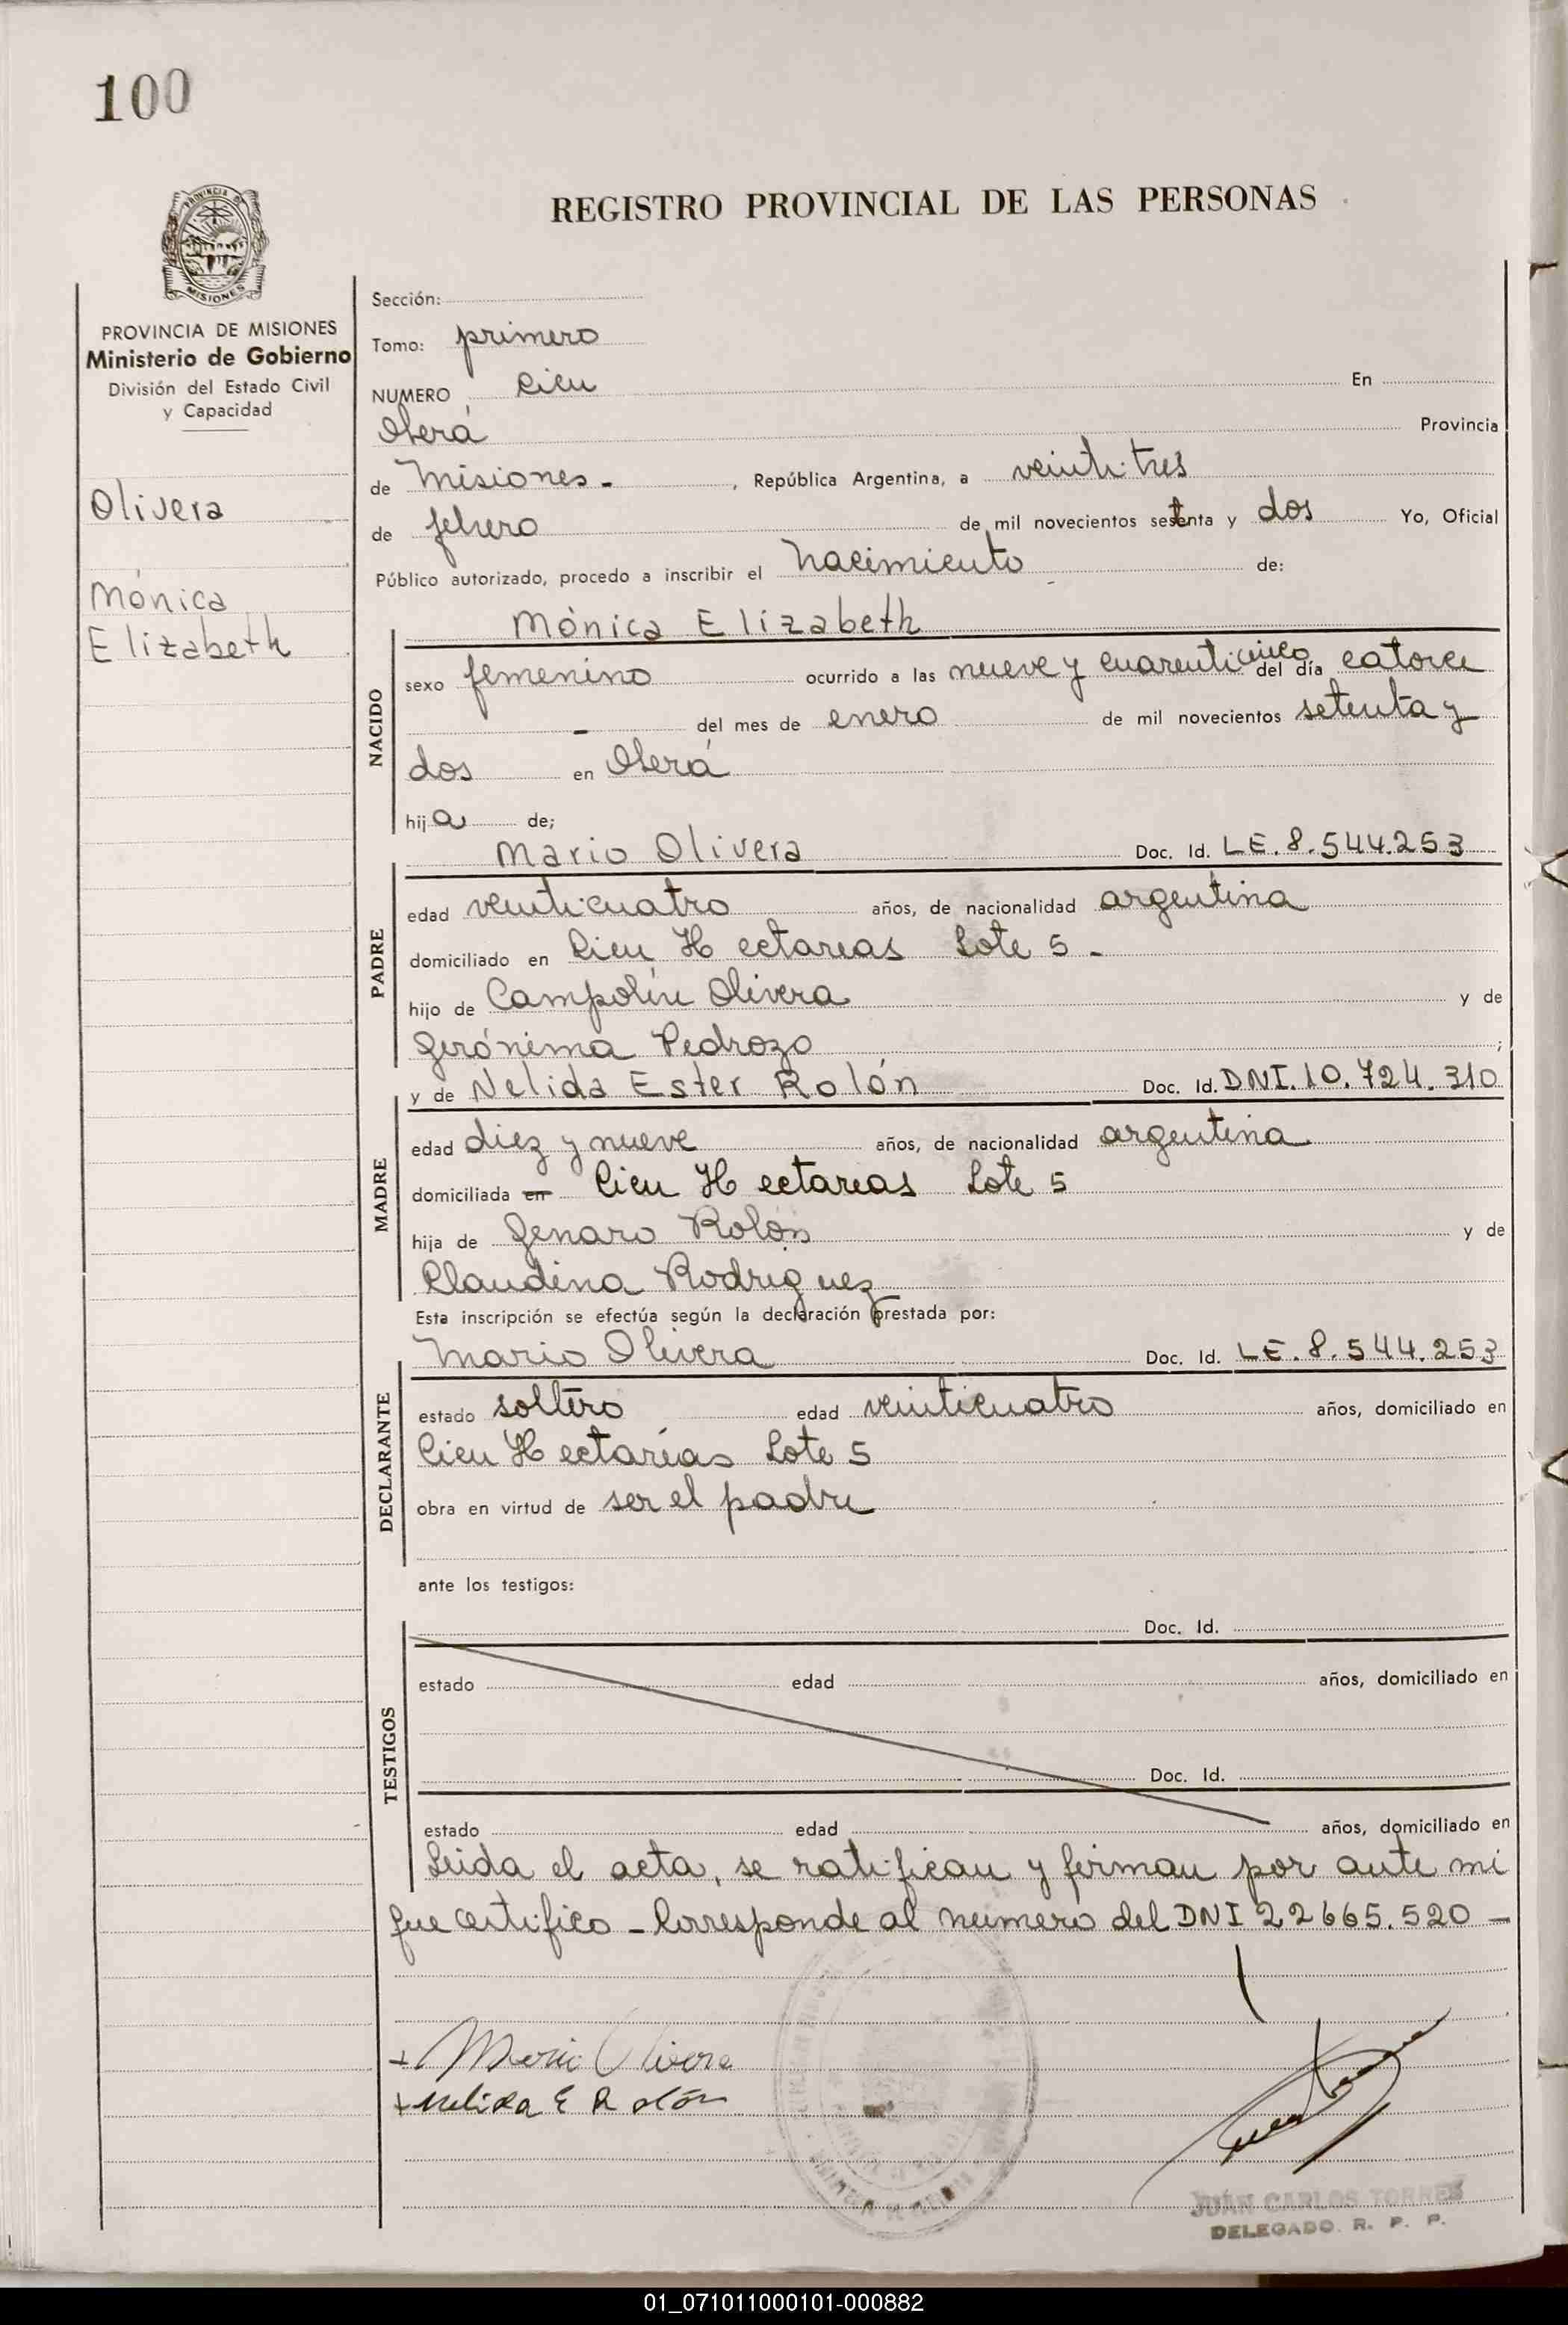 100
PROVINCIA
MISIONES
REGISTRO PROVINCIAL DE LAS PERSONAS
PROVINCIA DE MISIONES
Ministerio de Gobierno
División del Estado Civil
y Capacidad
Olivera
Mónica
Elizabeth
Sección:
Tomo: primero
NUMERO cien En
Oberá Provincia
de Misiones - , República Argentina, a veintitres
de febrero de mil novecientos setenta y dos Yo, Oficial
Público autorizado, procedo a inscribir el nacimiento de:
Mónica Elizabeth
NACIDO
sexo femenino ocurrido a las nueve y cuarenticinco del día catorce
- del mes de enero de mil novecientos setenta y
dos en Oberá
hija de;
Mario Olivera Doc. Id. LE. 8.544.253
PADRE
edad venticuatro años, de nacionalidad argentina
domiciliado en Cien Hectareas Lote 5 -
hijo de Campolín Olivera y de
Gerónima Pedrozo ;
y de Nelida Ester Rolón Doc. Id. DNI. 10.724.310
MADRE
edad diez y nueve años, de nacionalidad argentina
domiciliada en Cien Hectareas Lote 5
hija de Genaro Rolón y de
Claudina Rodriguez
Esta inscripción se efectúa según la declaración prestada por:
Mario Olivera Doc. Id. LE. 8.544.253
DECLARANTE
estado soltero edad veinticuatro años, domiciliado en
Cien Hectareas Lote 5
obra en virtud de ser el padre
ante los testigos:
Doc. Id.
TESTIGOS
estado edad años, domiciliado en
Doc. Id.
estado edad años, domiciliado en
Leida el acta, se ratifican y firman por ante mi
que certifico - Corresponde al número del DNI 22665.520 -
+ Mario Olivera
+ Nelida E Rolón
JUAN CARLOS TORRES
DELEGADO. R. P. P.
01_071011000101-000882